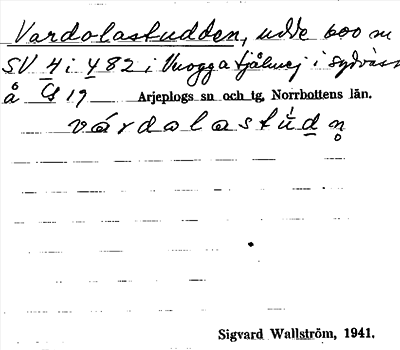 Vardolastudden, udde 600 m
SV 4 i 482 i Vuoggatjålmej i sydväst
å G 19 Arjeplogs sn och tg, Norrbottens län.
várdolastúdn̥
Sigvard Wallström, 1941.